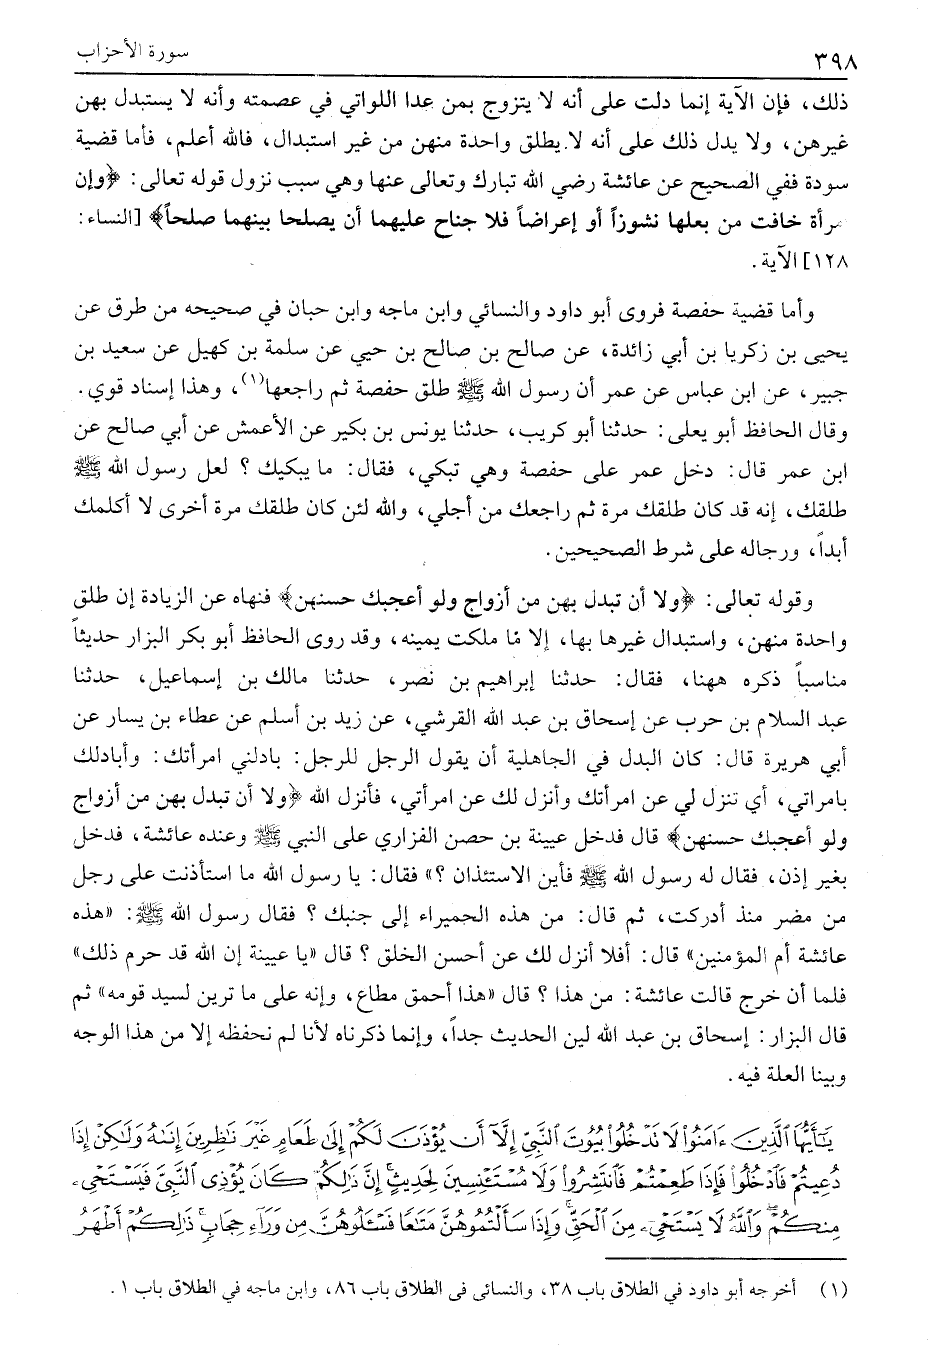 ٣٩٨ سورة الأحزاب
ذلك، فإن الآية إنما دلت على أنه لا يتزوج بمن عدا اللواتي في عصمته وأنه لا يستبدل بهن
غيرهن، ولا يدل ذلك على أنه لا يطلق واحدة منهن من غير استبدال، فالله أعلم، فأما قضية
سودة ففي الصحيح عن عائشة رضي الله تبارك وتعالى عنها وهي سبب نزول قوله تعالى: ﴿وإن
مرأة خافت من بعلها نشوزاً أو إعراضاً فلا جناح عليهما أن يصلحا بينهما صلحاً﴾ [النساء:
١٢٨] الآية.
وأما قضية حفصة فروى أبو داود والنسائي وابن ماجه وابن حبان في صحيحه من طرق عن
يحيى بن زكريا بن أبي زائدة، عن صالح بن صالح بن حيي عن سلمة بن كهيل عن سعيد بن
جبير، عن ابن عباس عن عمر أن رسول الله ﷺ طلق حفصة ثم راجعها(١)، وهذا إسناد قوي.
وقال الحافظ أبو يعلى: حدثنا أبو كريب، حدثنا يونس بن بكير عن الأعمش عن أبي صالح عن
ابن عمر قال: دخل عمر على حفصة وهي تبكي، فقال: ما يبكيك؟ لعل رسول الله ﷺ
طلقك، إنه قد كان طلقك مرة ثم راجعك من أجلي، والله لئن كان طلقك مرة أخرى لا أكلمك
أبداً، ورجاله على شرط الصحيحين.
وقوله تعالى: ﴿ولا أن تبدل بهن من أزواج ولو أعجبك حسنهن﴾ فنهاه عن الزيادة إن طلق
واحدة منهن، واستبدال غيرها بها، إلا مّا ملكت يمينه، وقد روى الحافظ أبو بكر البزار حديثاً
مناسباً ذكره ههنا، فقال: حدثنا إبراهيم بن نصر، حدثنا مالك بن إسماعيل، حدثنا
عبد السلام بن حرب عن إسحاق بن عبد الله القرشي، عن زيد بن أسلم عن عطاء بن يسار عن
أبي هريرة قال: كان البدل في الجاهلية أن يقول الرجل للرجل: بادلني امرأتك: وأبادلك
بامراتي، أي تنزل لي عن امرأتك وأنزل لك عن امرأتي، فأنزل الله ﴿ولا أن تبدل بهن من أزواج
ولو أعجبك حسنهن﴾ قال فدخل عيينة بن حصن الفزاري على النبي ﷺ وعنده عائشة، فدخل
بغير إذن، فقال له رسول الله ﷺ فأين الاستئذان؟» فقال: يا رسول الله ما استأذنت على رجل
من مضر منذ أدركت، ثم قال: من هذه الحميراء إلى جنبك؟ فقال رسول الله ﷺ: «هذه
عائشة أم المؤمنين» قال: أفلا أنزل لك عن أحسن الخلق؟ قال «يا عيينة إن الله قد حرم ذلك»
فلما أن خرج قالت عائشة: من هذا؟ قال «هذا أحمق مطاع، وإنه على ما ترين لسيد قومه» ثم
قال البزار: إسحاق بن عبد الله لين الحديث جداً، وإنما ذكرناه لأنا لم نحفظه إلا من هذا الوجه
وبينا العلة فيه.
يَٰٓأَيُّهَا ٱلَّذِينَ ءَامَنُوا۟ لَا تَدْخُلُوا۟ بُيُوتَ ٱلنَّبِىِّ إِلَّآ أَن يُؤْذَنَ لَكُمْ إِلَىٰ طَعَامٍ غَيْرَ نَٰظِرِينَ إِنَىٰهُ وَلَٰكِنْ إِذَا
دُعِيتُمْ فَٱدْخُلُوا۟ فَإِذَا طَعِمْتُمْ فَٱنتَشِرُوا۟ وَلَا مُسْتَـْٔنِسِينَ لِحَدِيثٍ ۚ إِنَّ ذَٰلِكُمْ كَانَ يُؤْذِى ٱلنَّبِىَّ فَيَسْتَحْىِۦ
مِنكُمْ ۖ وَٱللَّهُ لَا يَسْتَحْىِۦ مِنَ ٱلْحَقِّ ۚ وَإِذَا سَأَلْتُمُوهُنَّ مَتَٰعًا فَسْـَٔلُوهُنَّ مِن وَرَآءِ حِجَابٍ ۚ ذَٰلِكُمْ أَطْهَرُ
(١) أخرجه أبو داود في الطلاق باب ٣٨، والنسائى فى الطلاق باب ٨٦، وابن ماجه في الطلاق باب ١.